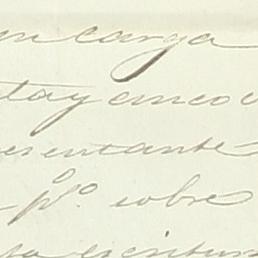 en carga
ntay cinco
resentante
pº sobre
ta escritur